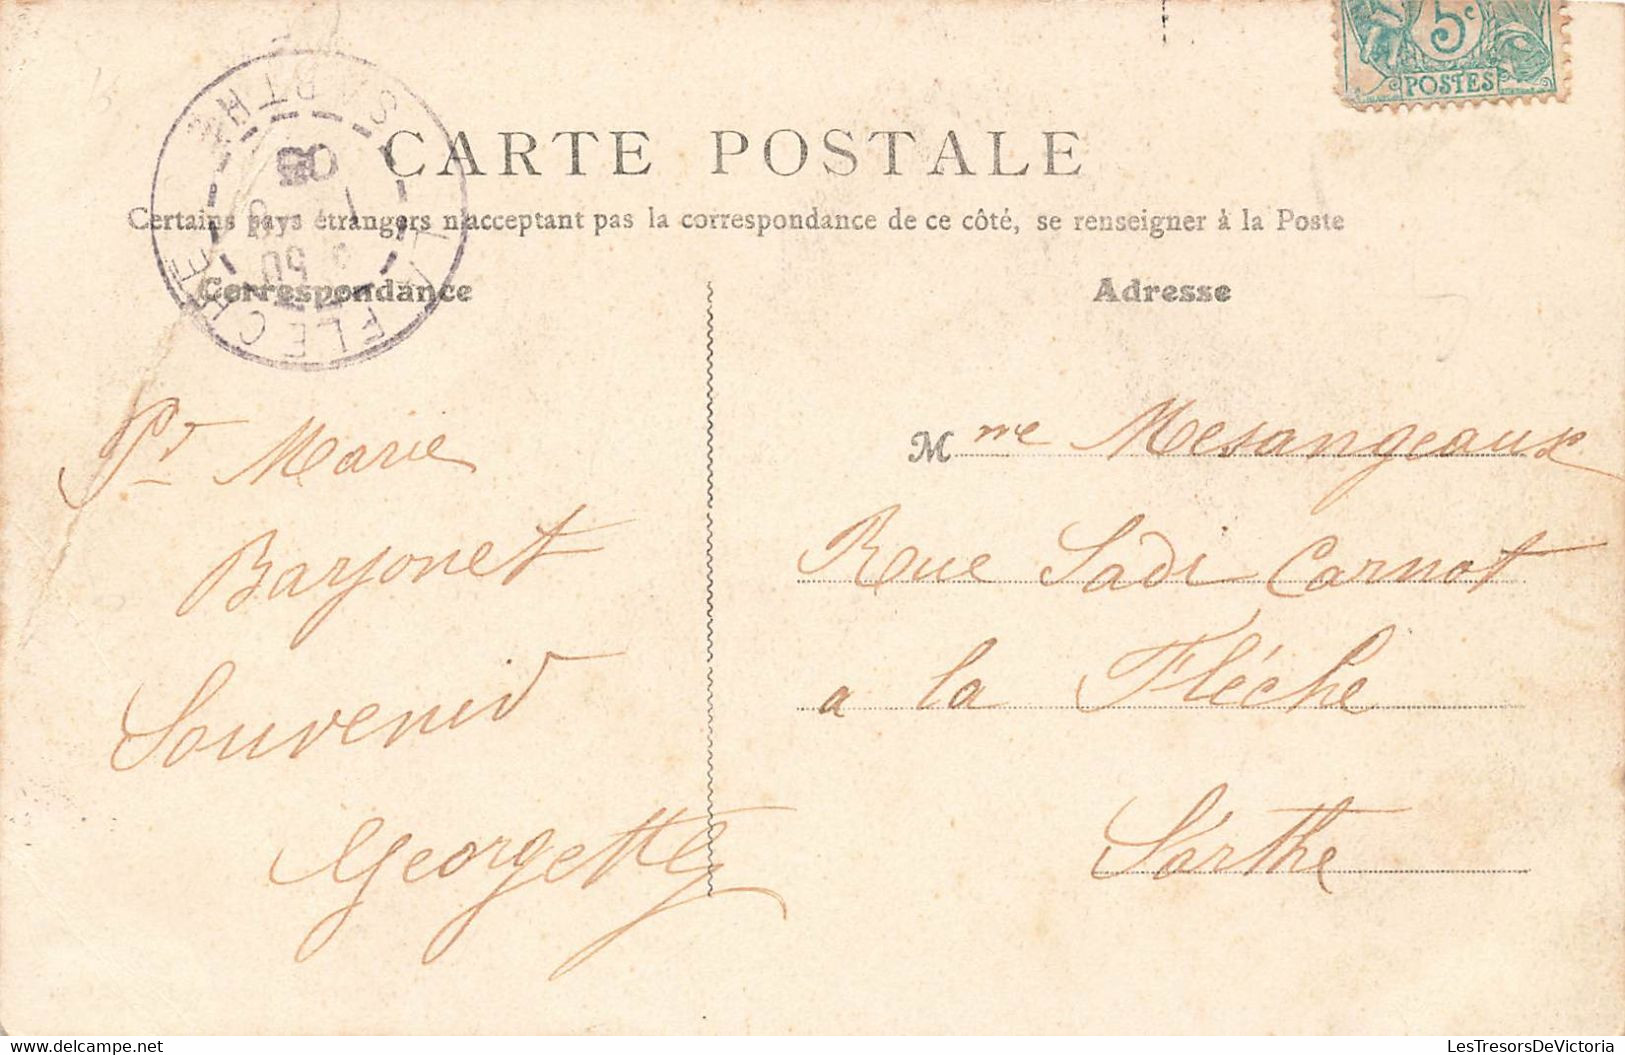 5c
POSTES
LA FLECHE
SARTHE
05
CARTE POSTALE
Certains pays étrangers n'acceptant pas la correspondance de ce côté, se renseigner à la Poste
Correspondance
Pr Marie
Barjonet
Souvenir
Georgette
Adresse
Mme Mesangeaux
Rue Sadi Carnot
a la Fléche
Sarthe
LesTresorsDeVictoria
www.delcampe.net